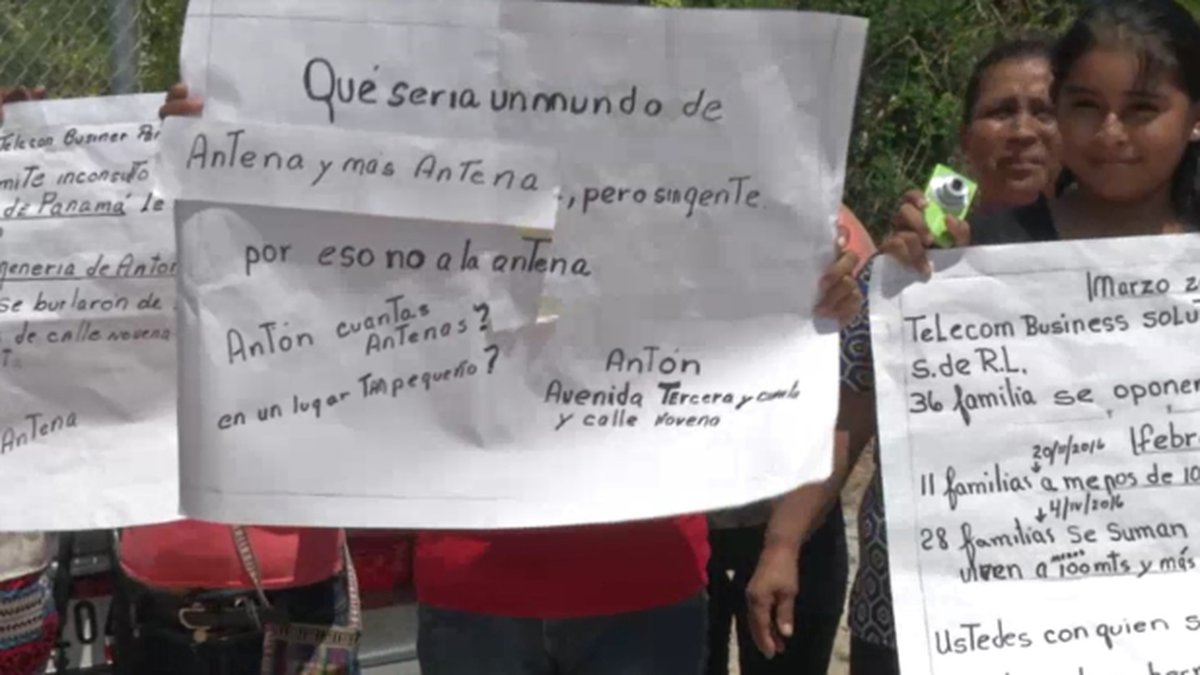 Telecon Businer Por
mite inconsuto
de Panamá le
generia de Anton
se burlaron de
de calle novena
Antena
Qué seria un mundo de
Antena y mas Antena
., pero sin gente.
por eso no a la antena
Antón cuantas
Antenas?
en un lugar Tan pequeño?
Antón
Avenida Tercera y
y calle Noveno
Marzo 2
Telecom Business Solu
S. de R.L.
36 familia se oponen
20/II/2016 febr
11 familias a menos de 10
4/IV/2016
28 familias Se Suman
viven a 100 mts y más
Ustedes con quien s